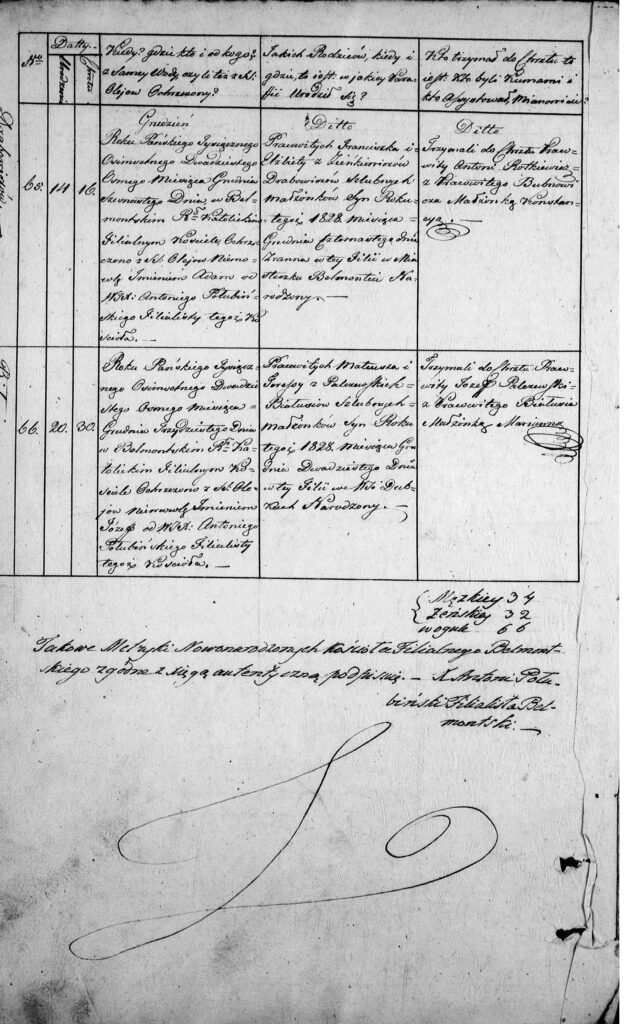 Nro
Datty
Urodzenia
Chrztu
Kiedy? gdzie kto i od kogo?
z Samey Wody, czyli też z St.
Olejow Ochrzczony?
Jakich Rodziców, kiedy i
gdzie, to iest: w jakiey Para-
fii Urodził się?
Kto trzymał do Chrztu to
iest: Kto byli Kumami i
kto Assystował, Mianowicie?
65.
14
16.
Grudzień
Roku Pańskiego Tysiącznego
Osimsetnego Dwudziestego
Osmego Miesiąca Grudnia
Szesnastego Dnia, w Bel-
montskim Rko Katolickim
Filialnym Kościele Ochrz-
czono z St. Olejow Niemo-
wlę Imieniem Adam od
WJX: Antoniego Połubiń-
skiego Filialisty tegoż Ko-
ścioła. —
Ditto
Prawowitych Franciszka i
Elżbiety z Pieńkiewiczów
Drabowiczów Szlubnych
Małżonków Syn Roku
tegoż 1828. Miesiąca
Grudnia Czternastego dnia
Zranna w tey Filii w Mia-
steczku Belmontcie Na-
rodzony. —
Ditto
Trzymali do Chrztu Prawo-
wity Antoni Rotkiewicz
z Prawowitego Bubnowi-
cza Małżonką Konstan-
cyą.
66.
20.
30.
Roku Pańskiego Tysiącz-
nego Osimsetnego Dwudzie-
stego Osmego Miesiąca
Grudnia Trzydziestego Dnia
w Belmontskim Rko Ka-
tolickim Filialnym Ko-
ściele Ochrzczono z St. Ole-
jow Niemowlę Imieniem
Józef od WJX: Antoniego
Połubińskiego Filialisty
tegoż Kościoła. —
Prawowitych Mateusza i
Teressy z Palczewskich
Białusiow Szlubnych
Małżonków Syn Roku
tegoż 1828. Miesiąca Gru-
dnia Dwudziestego Dnia
w tey Filii we Wsi Dub-
kach Narodzony. —
Trzymali do Chrztu Prawo-
wity Józef Palczewski
z Prawowitego Białusia
Małżonką Marianną
Męzkiey 34
Zeńskiey 32
wogule 66
Takowe Metryki Nowonarodzonych Kościoła Filialnego Belmont-
skiego zgodne z xięgą autentyczną podpisuię. — X. Antoni Połu-
biński Filialista Bel-
montski. —